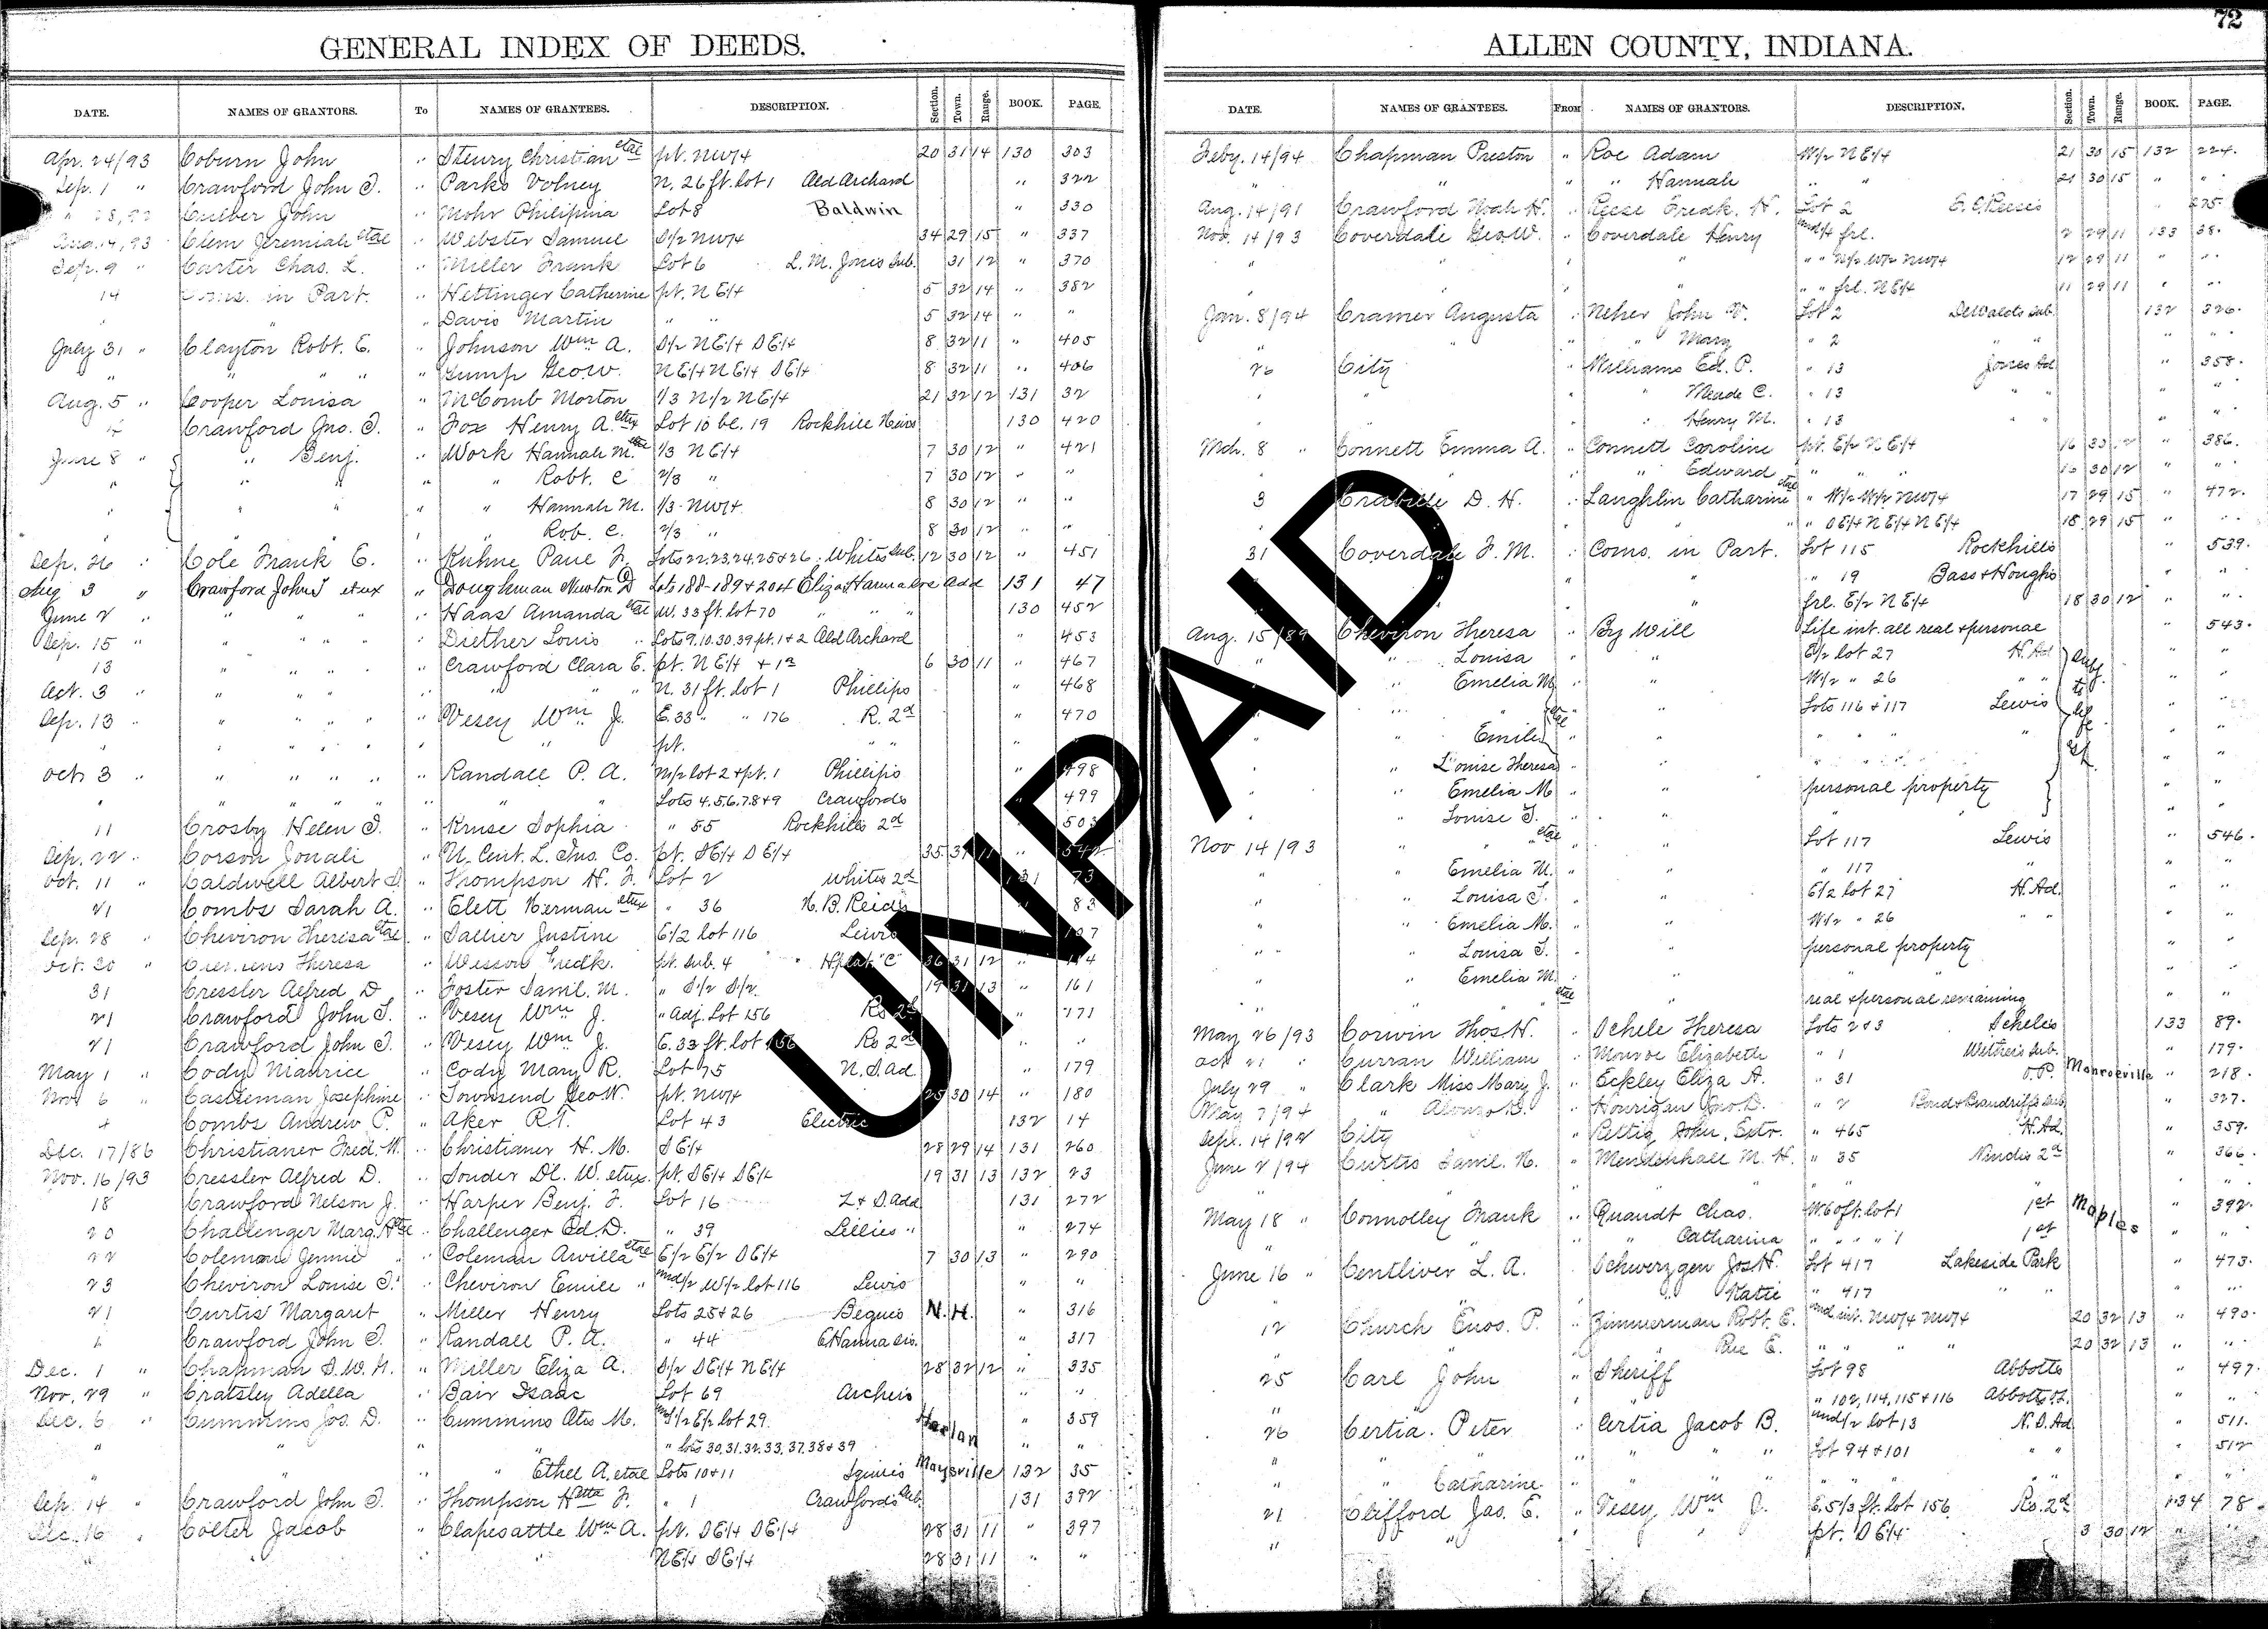 72
GENERAL INDEX OF DEEDS.
DATE. NAMES OF GRANTORS. To NAMES OF GRANTEES. DESCRIPTION. Section. Town. Range. BOOK. PAGE.
Apr. 24/93 Coburn John " Steury Christian etal pt. NW/4 20 31 14 130 303
Sep. 1 " Crawford John T. " Parks Volney N. 26 ft. lot 1 Old Orchard " 322
John " Mohr Philipina Lot 8 Baldwin " 330
Aug. 14, 93 Clem Jeremiah etal " Webster Samuel S/2 NW/4 34 29 15 " 337
Sep. 9 " Carter Chas. L. " Miller Frank Lot 6 L. M. Jones Sub. 31 12 " 370
14 Coms. in Part. " Hettinger Catherine pt. NE/4 5 32 14 " 382
" " Davis Martin " " 5 32 14 " "
July 31 " Clayton Robt. E. " Johnson Wm A. S/2 NE/4 SE/4 8 32 11 " 405
" " " " " Gump Geo W. NE/4 NE/4 SE/4 8 32 11 " 406
Aug. 5 " Cooper Louisa " McComb Morton 1/3 N/2 NE/4 21 32 12 131 32
Crawford Jno. T. " Fox Henry A. etux Lot 10 bl. 19 Rockhill Heirs 130 420
June 8 " " Benj. " Work Hannah M. etal 1/3 NE/4 7 30 12 " 421
" " " " " Robt. C 2/3 " 7 30 12 " "
" " " " " Hannah M. 1/3 NW/4 8 30 12 " "
" Rob. C. 2/3 " 8 30 12 " "
Sep. 26 " Cole Frank E. " Kuhne Paul F. Lots 22.23.24.25 & 26 Whites Sub. 12 30 12 " 451
Aug 3 " Crawford John T etux " Doughman Newton D Lots 188-189 & 204 Eliza Hanna Add 131 47
June 2 " " " " " Haas Amanda etal W. 33 ft. lot 70 " " 130 452
Sep. 15 " " " " " Diether Louis " Lots 9.10.30.39 pt. 1 & 2 Old Orchard " 453
13 " " " " Crawford Clara E. pt. NE/4 6 30 11 " 467
Oct. 3 " " " " " " " N. 31 ft. lot 1 Phillips " 468
Sep. 13 " " " " " Vesey Wm J. E. 33 " " 176 R. 2d " 470
" " " " " " " pt. " " "
Oct 3 " " " " " Randall P. A. N/2 lot 2 & pt. 1 Phillips " 498
" " " " " " " Lots 4.5.6.7.8 & 9 Crawfords " 499
11 Crosby Helen T. " Kruse Sophia " 55 Rockhills 2d 503
Sep. 22 " Corson Jonah " U. Cent. L. Ins. Co. pt. SE/4 SE/4 35 31 11 " 542
Oct. 11 " Caldwell Albert S. " Thompson H. F. Lot 2 Whites 2d 131 73
21 Combs Sarah A. " Elett Herman etux " 36 N. B. Reid's 83
Sep. 28 " Cheviron Theresa etal " Sallier Justine E/2 lot 116 Lewis 107
Oct. 30 " Theresa " Wesson Fredk. pt. Sub. 4 "C" 36 31 12 " 114
31 Cressler Alfred D " Foster Saml. M. " S/2 S/2 19 31 13 " 161
21 Crawford John T. " Vesey Wm J. " Adj. Lot 156 Ro 2d " 171
21 Crawford John T. " Vesey Wm J. E. 33 ft. lot 156 Ro 2d " "
May 1 " Cody Maurice " Cody Mary R. Lot 75 N. S. ad " 179
Nov. 6 " Castleman Josephine " Townsend Geo W. pt. NW/4 25 30 14 " 180
4 Combs Andrew P. " Aker R.T. Lot 43 Electric 132 14
Dec. 17/86 Christianer Fred. W. " Christianer H. M. SE/4 28 29 14 131 260
Nov. 16/93 Cressler Alfred D. " Souder Dl. W. etux pt. SE/4 SE/4 19 31 13 132 23
18 Crawford Nelson J. " Harper Benj. F. Lot 16 L & S. Add 131 272
20 Challenger Marg. A etal " Challenger Ed. D. " 39 Lillies " " 274
22 Coleman Jennie " Coleman Arvilla etal E/2 E/2 SE/4 7 30 13 " 290
23 Cheviron Louise T. " Cheviron Emile " und/2 W/2 lot 116 Lewis " "
21 Curtis Margaret " Miller Henry Lots 25 & 26 Beguis N. H. " 316
Crawford John T. " Randall P. A. " 44 E Hanna Div. " 317
Dec. 1 " Chapman S. W. H. " Miller Eliza A. S/2 SE/4 NE/4 28 32 12 " 335
Nov. 29 " Cratsley Adella " Bair Isaac Lot 69 Archers " "
Dec. 6 " Cummins Jos. D. " Cummins Otis M. und/2 E/2 lot 29 Harlan " 359
" " " " " lots 30.31.32.33.37.38 & 39 " "
" " " " Ethel A. etal Lots 10 & 11 Squires Maysville 132 35
Sep. 14 " Crawford John T. " Thompson Hetta F. " 1 Crawfords Sub. 131 392
Dec. 16 " Colter Jacob " Clapesattle Wm A. pt. SE/4 SE/4 28 31 11 " 397
" " " " NE/4 SE/4 28 31 11 " "
ALLEN COUNTY, INDIANA.
DATE. NAMES OF GRANTEES. FROM NAMES OF GRANTORS. DESCRIPTION. Section. Town. Range. BOOK. PAGE.
Feby. 14/94 Chapman Preston " Roe Adam W/2 NE/4 21 30 15 132 224
" " " " Hannah " " 21 30 15 " "
Aug. 14/91 Crawford Noah H. " Reese Fredk. H. Lot 2 Reese's 275
Nov. 14/93 Coverdale Geo W. " Coverdale Henry und/4 frl. 2 29 11 133 38
" " " " " " N/2 W/2 NW/4 12 29 11 " "
" " " " " " frl. NE/4 11 29 11 " "
Jan. 8/94 Cramer Augusta " Neher John V. Lot 2 DeWalds Sub. 132 326
" " " " Mary " 2 " " "
26 City " Williams Ed. P. " 13 Jones Ad " 358
" " " " Meade C. " 13 " " "
" " " " Henry M. " 13 " " "
Mch. 8 " Connett Emma A. " Connett Caroline pt. E/2 NE/4 16 30 12 " 386
" " " " Edward " " " 16 30 12 " "
3 Crabille D. H. " Laughlin Catharine etal " W/2 W/2 NW/4 17 29 15 " 472
" " " " " SE/4 NE/4 NE/4 18 29 15 " "
31 Coverdale F. M. " Coms. in Part. Lot 115 Rockhills " 539
" " " " 19 Bass & Houghs " "
" " frl. E/2 NE/4 18 30 12 " "
Aug. 15/89 Cheviron Theresa " By Will Life int. all real & personal " 543
" " Louisa " " E/2 lot 27 H. Ad " "
" " Emelia M. " " W/2 " 26 " " "
" " " etal " " Lots 116 & 117 Lewis " "
" " Emile " " " " " "
" " Louise Theresa " " " "
" " Emelia M " " personal property " "
" " Louise T. " " " "
Nov 14/93 " " etal " Lot 117 Lewis " 546
" " Emelia M. " " " 117 " " "
" " Louisa T. " " E/2 lot 27 H. Ad. " "
" " Emelia M. " " W/2 " 26 " " "
" " Louisa T. " " personal property " "
" " Emelia M. " " " " "
" " " etal " real & personal remaining " "
May 26/93 Corwin Thos H. " Schele Theresa Lots 2 & 3 Scheles 133 89
Oct 21 " Curran William " Monroe Elizabeth " 1 Withers Sub. " 179
July 29 " Clark Miss Mary J. " Eckley Eliza A. " 31 O. P. Monroeville " 218
May 7/94 " Alonzo " Hourigan Jno. D. " 2 Bond & Brandriffs Sub. " 327
Sept. 14/92 City " Rettig John, Extr. " 465 H. Ad. " 359
June 2/94 Curtis Saml. N. " Mendenhall M. H. " 35 Nindes 2d " 366
" " " " " " " " "
May 18 " Connolley Frank " Quandt Chas. W. 60 ft. lot 1 1st Maples " 392
" " " " Catharina " " " " 1 1st " "
June 16 " Centliver L. A. " Schwerzgen Jos H. Lot 417 Lakeside Park " 473
" " " " Katie " 417 " " " "
12 Church Enos. P. " Zimmerman Robt. E. und int. NW/4 NW/4 20 32 13 " 490
" " " " Rue E. " " " 20 32 13 " "
25 Carl John " Sheriff Lot 98 Abbotts " 497
" " " " " 102, 114, 115 & 116 Abbotts " "
26 Certia Peter " Certia Jacob B. und/2 lot 13 N. S. Ad " 511
" " " " " " Lot 94 & 101 " " " 512
" " Catharine " " " " " " " "
21 Clifford Jas. E. " Vesey Wm J. E. 51/3 ft. lot 156 Ro. 2d 134 78
" " " " pt. SE/4 3 30 12 " "
UNPAID